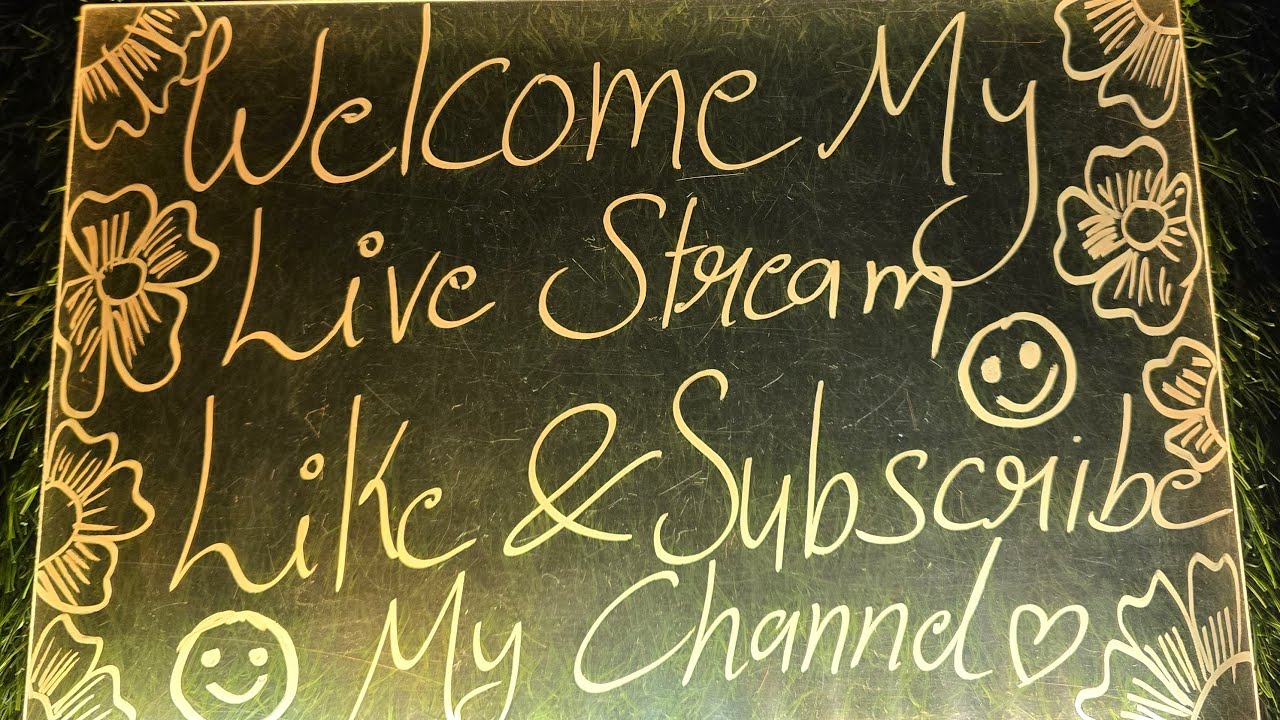 Welcome My
Live Stream
Like & Subscribe
My Channel